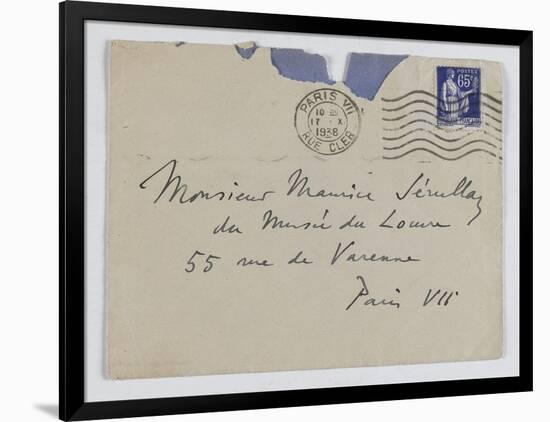 PARIS VII
10
17 · X
1938
RUE CLER
POSTES
65c
Monsieur Maurice Sérullaz
du Musée du Louvre
55 rue de Varenne
Paris VII